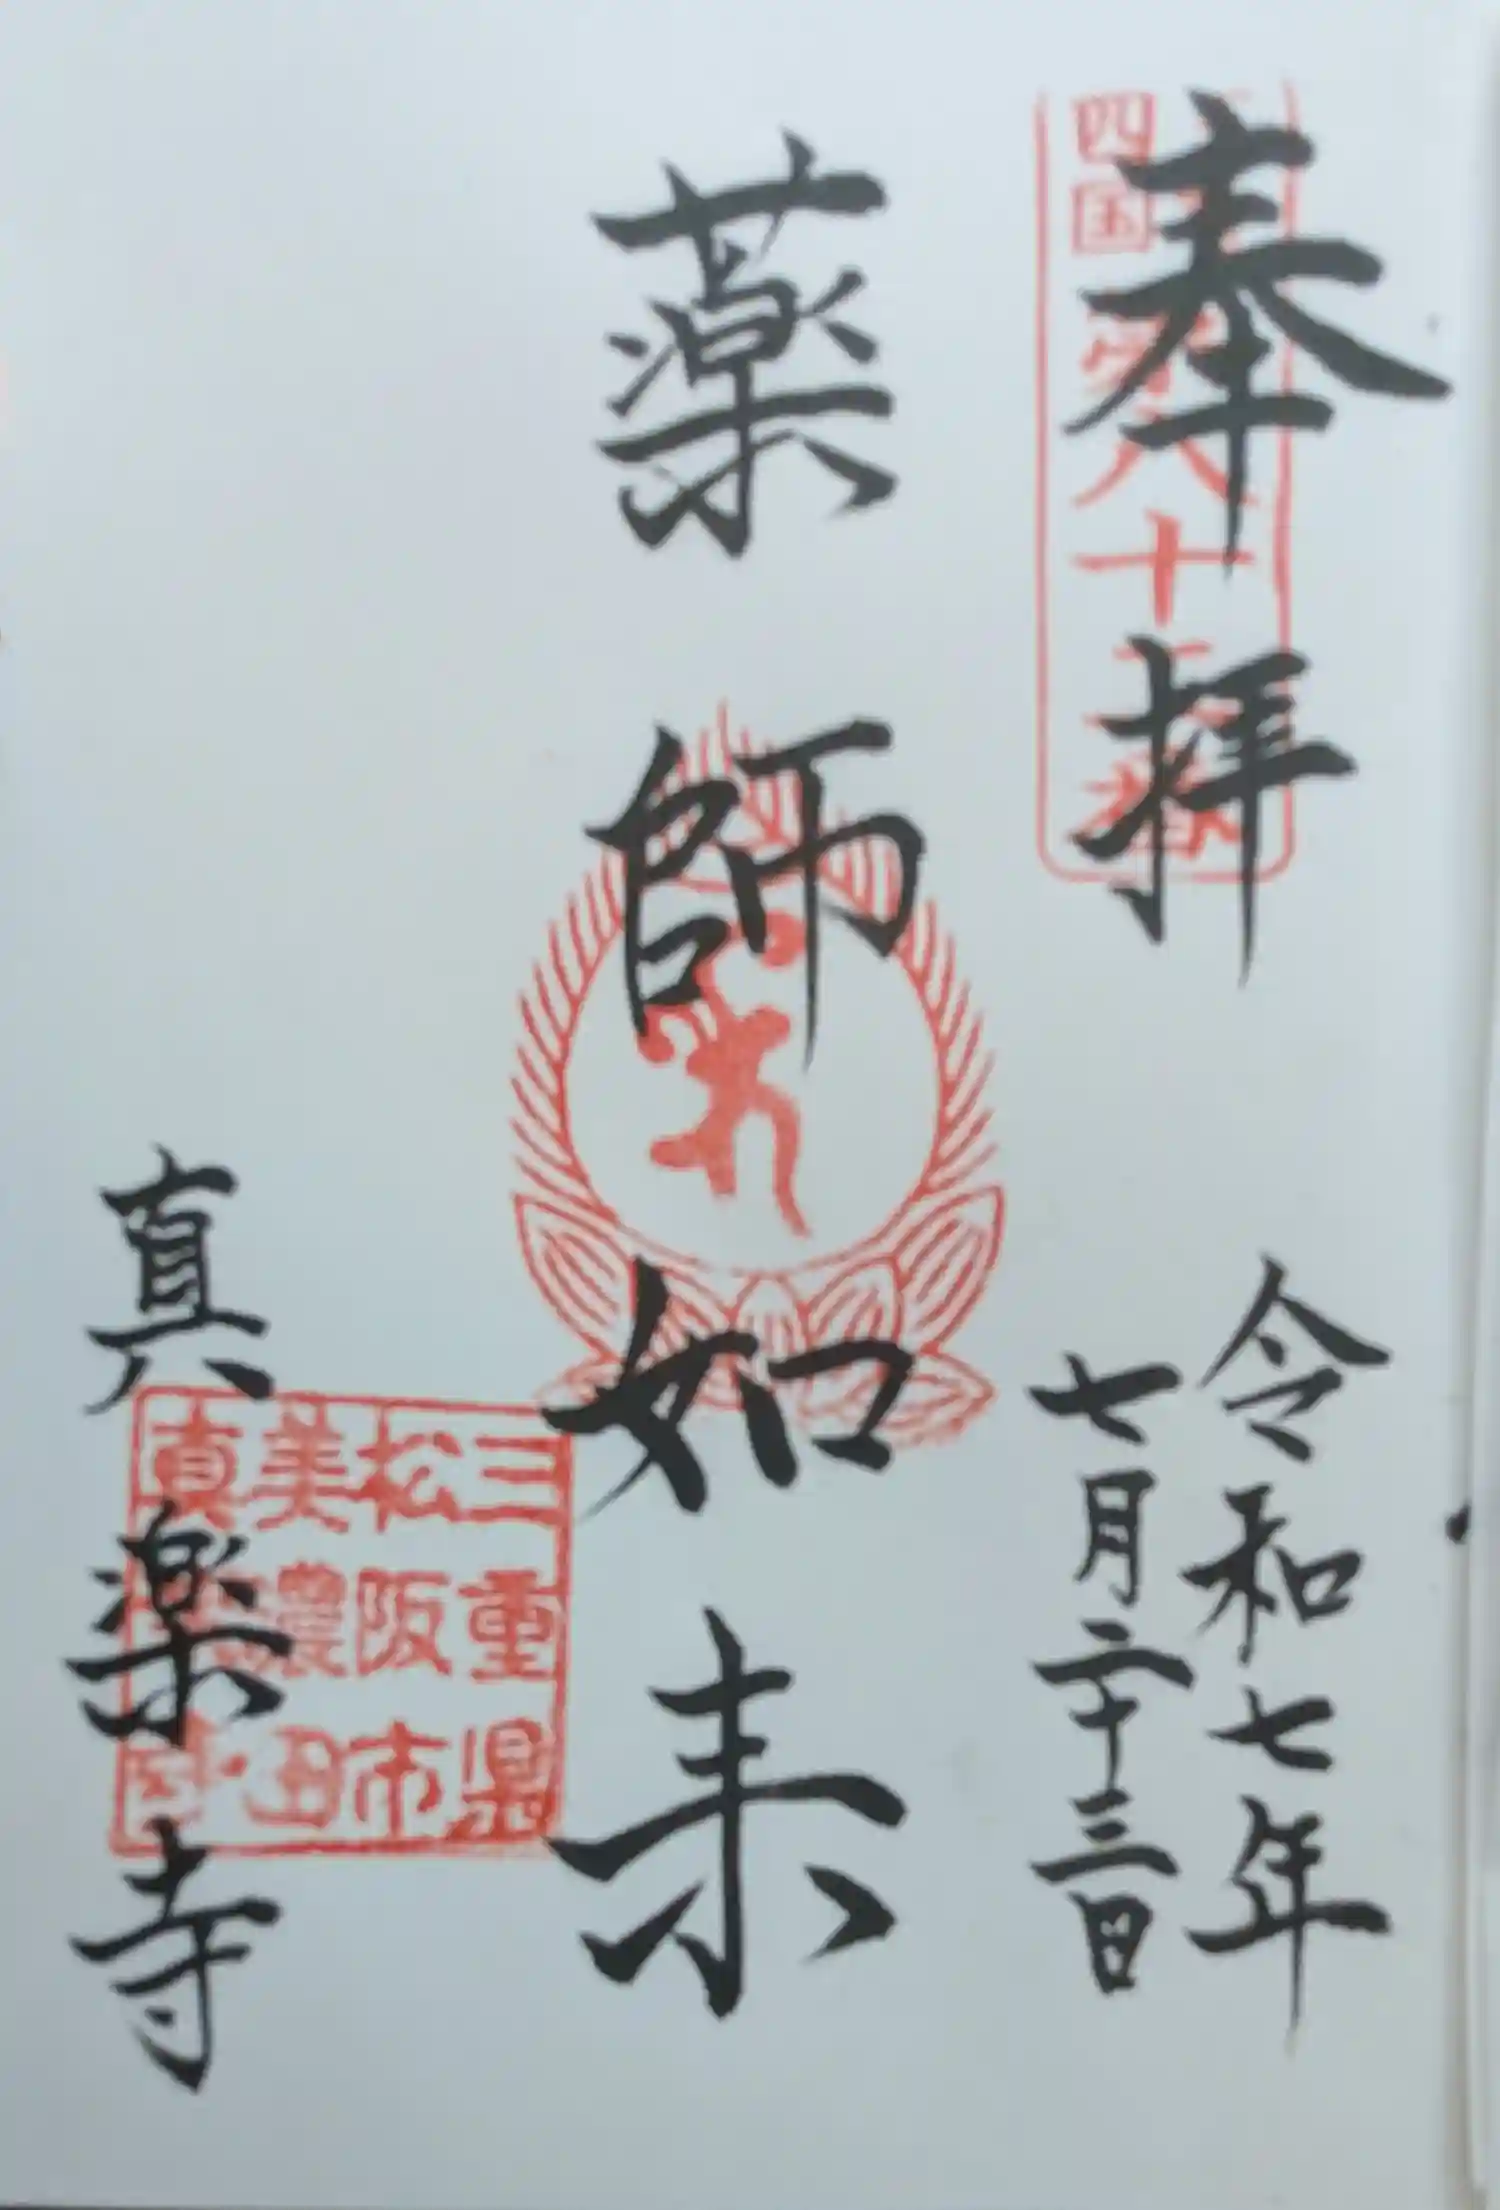 奉拝
令和七年
七月二十三日
薬師如来
真楽寺
四国
八十
番
三重県
松阪市
美濃田
真